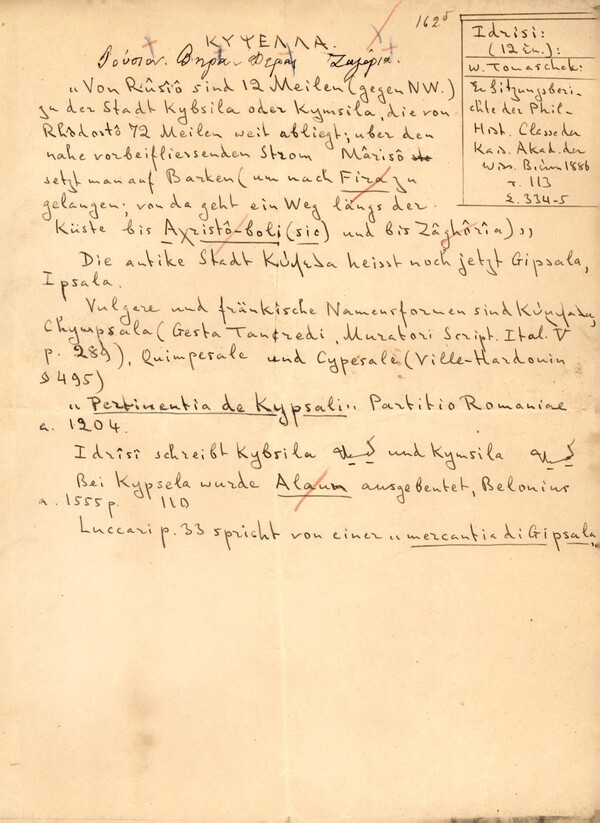 162δ
ΚΥΨΕΛΛΑ.
Ρούσιον. Βηραν Φεραι Ζαγόρια.
Idrisi:
(12 έν.):
W. Tomaschek:
Er Sitzungsberi-
chte der Phil-
Hist. Classe der
Kais. Akad. der
Wiss. Bienn 1886
τ. 113
Σ. 334-5
„Von Rûsiô sind 12 Meilen (gegen NW.)
zu der Stadt Kybsila oder Kymsila, die von
Rhôdostô 72 Meilen weit abliegt; uber den
nahe vorbeifliessenden Strom Mârisô
setzt man auf Barken (um nach Fira zu
gelangen; von da geht ein Weg längs der
Küste bis Aχristô-boli (sic) und bis Zâghôrîa)„
Die antike Stadt Κύψελα heisst noch jetzt Gipsala,
Ipsala.
Vulgere und fränkische Namensformen sind Κύμψαλα,
Chympsala (Gesta Tancredi, Muratori Script. Ital. V
p. 289), Quimpesale und Cypesale (Ville-Hardouin
§ 495)
„Pertinentia de Kypsali„ Partitio Romaniae
a. 1204.
Idrîsî schreibt Kybsila und Kymsila
Bei Kypsela wurde Alaun ausgebeutet, Belonius
a. 1555 p. 110
Luccari p. 33 spricht von einer „mercantia di Gipsala„